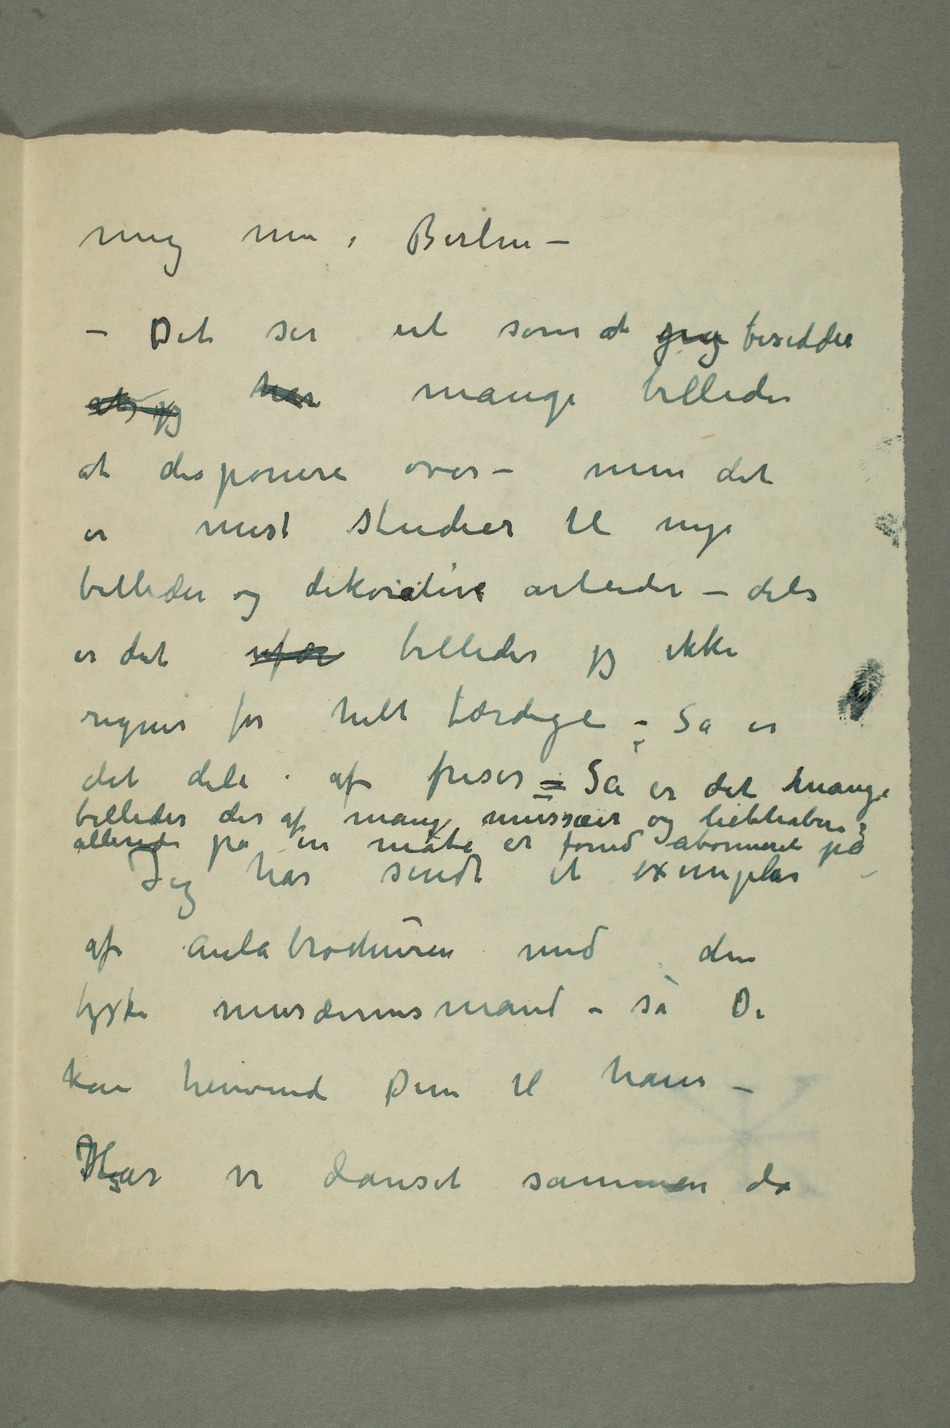 mig nu i Berlin –
– Det ser ut som at jeg besidder
at jeg har mange billeder
at disponere over – men det
er mest studier til nye
billeder og dekorative arbeider – dels
er det ufær billeder jeg ikke
regner for helt færdige – Så er
det dele af friser – Så er det mange
billeder der af mange mussæer og liebhabere
allerede på en måte er forud abonneret på
Jeg har sendt et exemplar –
af Aulabrochuren med den
tyske musæumsmand – så De
kan henvend Dem til ham –
Har vi danset sammen da